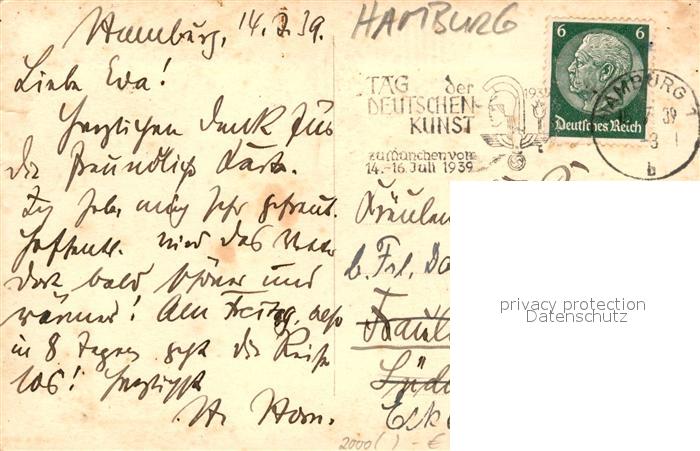 Hamburg, 14. 7. 39.
Liebe Eva!
Herzlichen Dank für
die freundliche Karte.
Ich habe mich sehr gefreut.
Hoffentl. wird das Wetter
dort bald schöner und
wärmer! Am Freitag, also
in 8 Tagen geht die Reise
los! Herzlichst
HAMBURG
TAG der
DEUTSCHEN
KUNST
zu München vom
14.-16. Juli 1939
6 6
Deutsches Reich
HAMBURG 1
39
b
Fräulein
b. Frl.
privacy protection
Datenschutz
2000( ) - €